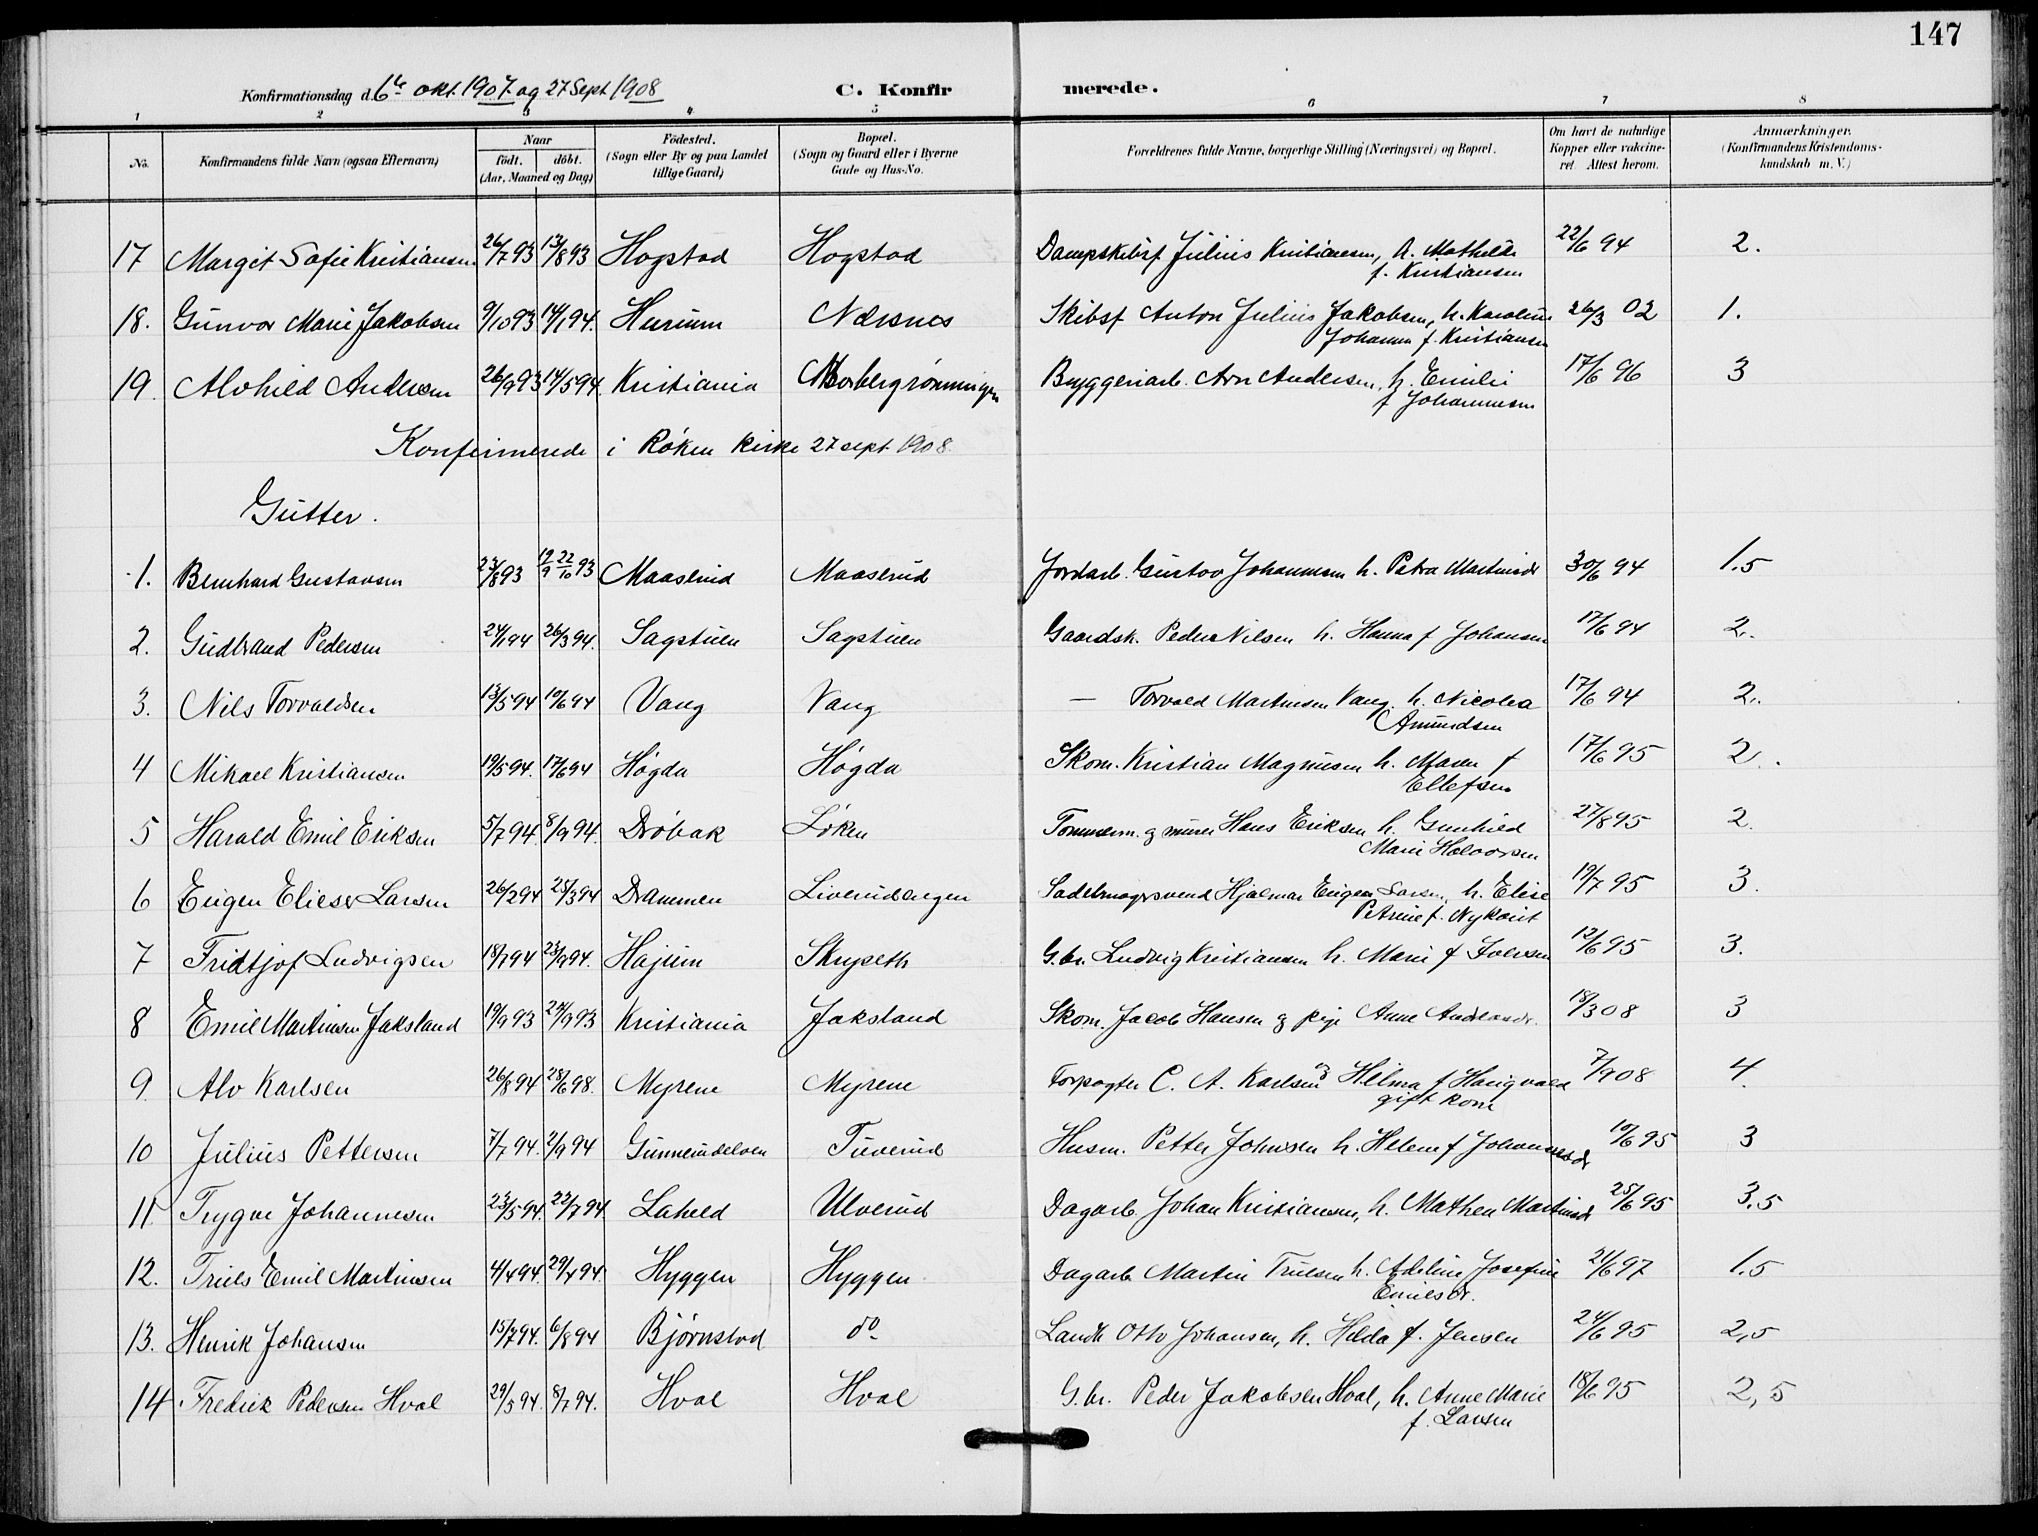 147
Konfirmationsdag d. 6te okt. 1907. og 27 Sept 1908 C. Konfirmerede.
1 2 3 4 5 6 7 8
No. Konfirmandens fulde Navn (ogsaa Efternavn) Naar født. døbt. (Aar, Maaned og Dag) Fødested. (Sogn eller By og paa Landet tillige Gaard) Bopæl. (Sogn og Gaard eller i Byerne Gade og Hus-No. Forældrenes fulde Navne, borgerlige Stilling (Næringsvei) og Bopæl. Om havt de naturlige Kopper eller vakcineret. Attest herom. Anmærkninger. (Konfirmandens Kristendomskundskab m. V.)
17 Margit Sofie Kristiansen 26/7 93 13/8 93 Hogstad Hogstad Dampskibsf. Julius Kristiansen, h. Mathilde f. Kristiansen 22/6 94 2.
18. Gunvor Marie Jakobsen 9/10 93 14/1 94. Hurum Næsnes Skibsf Anton Julius Jakobsen, h. Karoline Johanne f. Kristiansen 26/3 02 1.
19. Alvhild Andersen 26/9 93 14/5 94. Kristiania Byggeriarb. Arn Andersen, h. Emilie f Johannesen 17/6 96 3
Konfirmerede i Røken kirke 27 sept. 1908.
Gutter.
1. Bernhard Gustavsen 23/8 93 19/9 22/10 93 Maaslud Maaslud Jordarb. Gustav Johannesen h. Petra Martinsdr 30/6 94 1.5
2. Gudbrand Pedersen 24/1 94 26/3 94. Sagstuen Sagstuen Gaardsk. Peder Nilsen h. Hanna f Johansen 17/6 94 2.
3. Nils Torvaldsen 13/5 94 10/6 94 Vang Vang — Torvald Martinsen Vang. h. Nicolea Amundsen 17/6 94 2.
4 Mikael Kristiansen 19/5 94. 17/6 94 Høgda Høgda Skom. Kristian Magnusen h. Maren f Ellefsen 17/6 95 2.
5 Harald Emil Eriksen 5/7 94. 8/9 94. Drøbak Løken Tømmerm. og murer Hans Eriksen h. Gunhild Marie Halvorsen 27/8 95 2.
6 Eugen Elieser Larsen 26/2 94 25/3 94 Drammen Liverudengen Sadelmagersvend Hjalmar Eugen Larsen, h. Elise Petrine f. Nykvist 19/7 95 3.
7 Fridtjof Ludvigsen 18/7 94 23/9 94. Hajum Skrypeth G.br. Ludvig Kristiansen h. Marie f Iversen 12/6 95 3.
8 Emil Martinsen Jaksland 19/9 93 24/9 93 Kristiania Jaksland Skom. Jacob Hansen og pige Anne Andersdr. 18/3 08 3
9. Alv Karlsen 26/8 94 28/6 98. Myrene Myrene Forpagter C. A. Karlsen og Helma f Haugvald gift kone 7/9 08 4.
10 Julius Pettersen 7/7 94. 2/9 94 Gunnerudelven Tuverud Husm. Petter Johnsen h. Helene f Johannesdr 10/6 95 3
11. Trygve Johannesen 23/5 94. 22/7 94. Laheld Ulverud Dagarb. Johan Kristiansen, h. Mathea Martinsdr 25/6 95 3.5
12. Truls Emil Martinsen 4/4 94. 29/4 94. Hyggen Hyggen Dagarb Martin Trulsen h. Adeline Josefine Emilsdr. 21/6 97 1.5
13. Henrik Johansen 15/7 94. 6/8 94 Bjørnstad do. Landh Otto Johansen, h. Hilda f. Jensen 24/6 95 2,5
14. Fredrik Pedersen Hval 29/5 94. 8/7 94. Hval Hval G.br. Peder Jakobsen Hval, h. Anne Marie f. Larsen 18/6 95 2,5